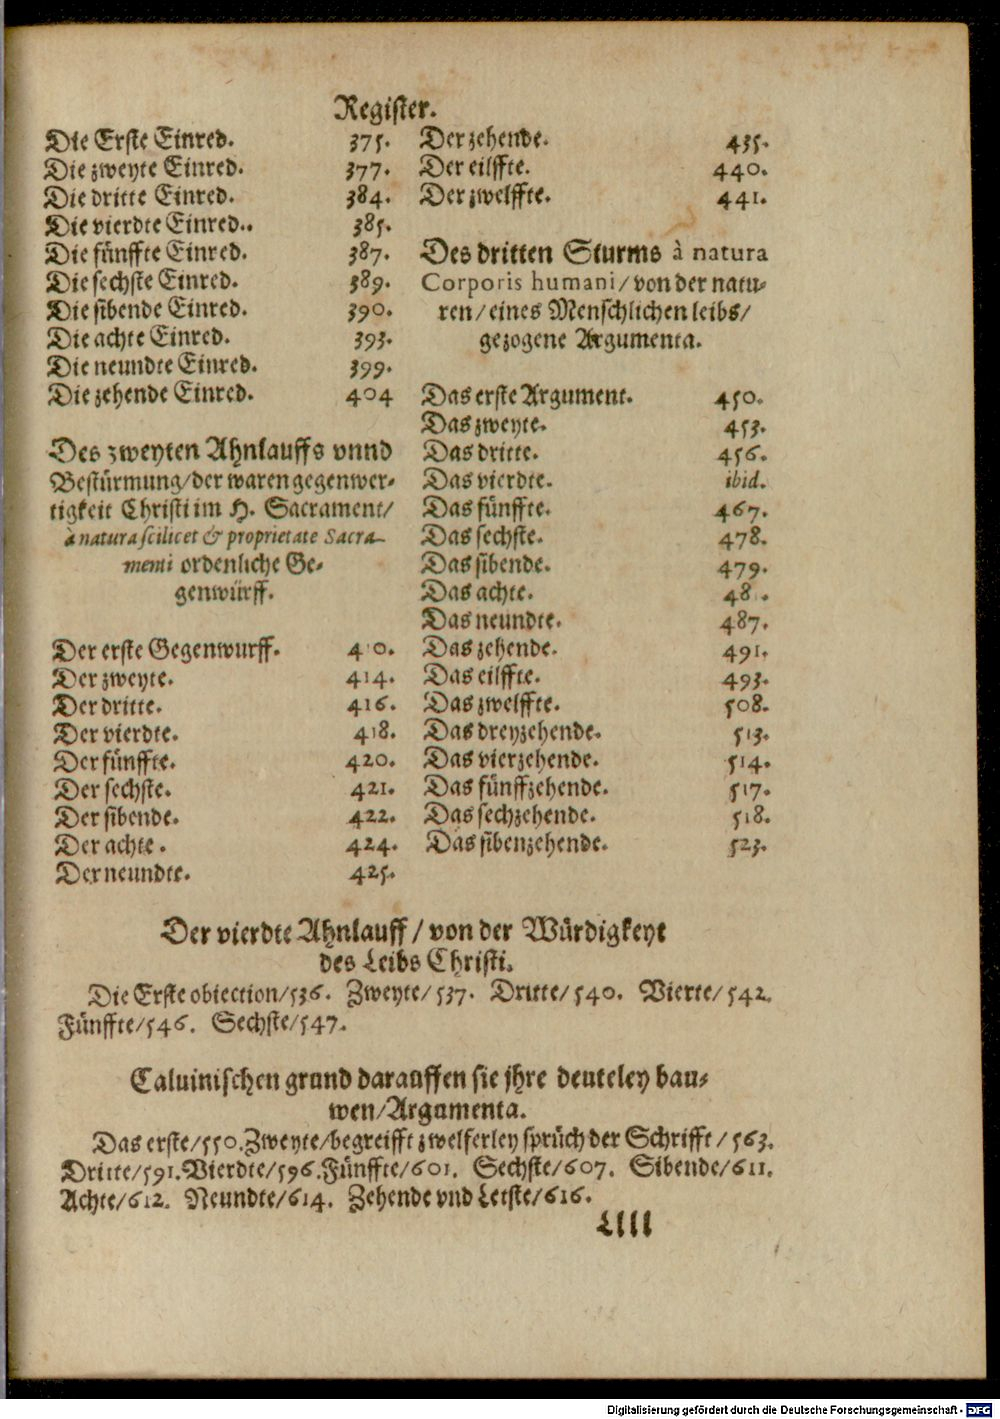 Register.
Die Erste Einred. 375.
Die zweyte Einred. 377.
Die dritte Einred. 384.
Die vierdte Einred.. 385.
Die fünffte Einred. 387.
Die sechste Einred. 389.
Die sibende Einred. 390.
Die achte Einred. 393.
Die neundte Einred. 399.
Die zehende Einred. 404
Des zweyten Ahnlauffs vnnd
Bestürmung/der waren gegenwer-
tigkeit Christi im H. Sacrament/
à natura scilicet & proprietate Sacra-
menti ordenliche Ge-
genwürff.
Der erste Gegenwurff. 410.
Der zweyte. 414.
Der dritte. 416.
Der vierdte. 418.
Der fünffte. 420.
Der sechste. 421.
Der sibende. 422.
Der achte. 424.
Der neundte. 425.
Der zehende. 435.
Der eilffte. 440.
Der zwelffte. 441.
Des dritten Sturms à natura
Corporis humani/von der natu-
ren/eines Menschlichen leibs/
gezogene Argumenta.
Das erste Argument. 450.
Das zweyte. 453.
Das dritte. 456.
Das vierdte. ibid.
Das fünffte. 467.
Das sechste. 478.
Das sibende. 479.
Das achte.
Das neundte. 487.
Das zehende. 491.
Das eilffte. 493.
Das zwelffte. 508.
Das dreyzehende. 513.
Das vierzehende. 514.
Das fünffzehende. 517.
Das sechzehende. 518.
Das sibenzehende. 523.
Der vierdte Ahnlauff/von der Würdigkeyt
des Leibs Christi.
Die Erste obiection/536. Zweyte/537. Dritte/540. Vierte/542.
Fünffte/546. Sechste/547.
Caluinischen grund darauffen sie jhre deuteley bau-
wen/Argumenta.
Das erste/550. Zweyte/begreifft zwelferley sprüch der Schrifft/563.
Dritte/591. Vierdte/596. Fünffte/601. Sechste/607. Sibende/611.
Achte/612. Neundte/614. Zehende vnd Letste/616.
Llll
Digitalisierung gefördert durch die Deutsche Forschungsgemeinschaft - DFG